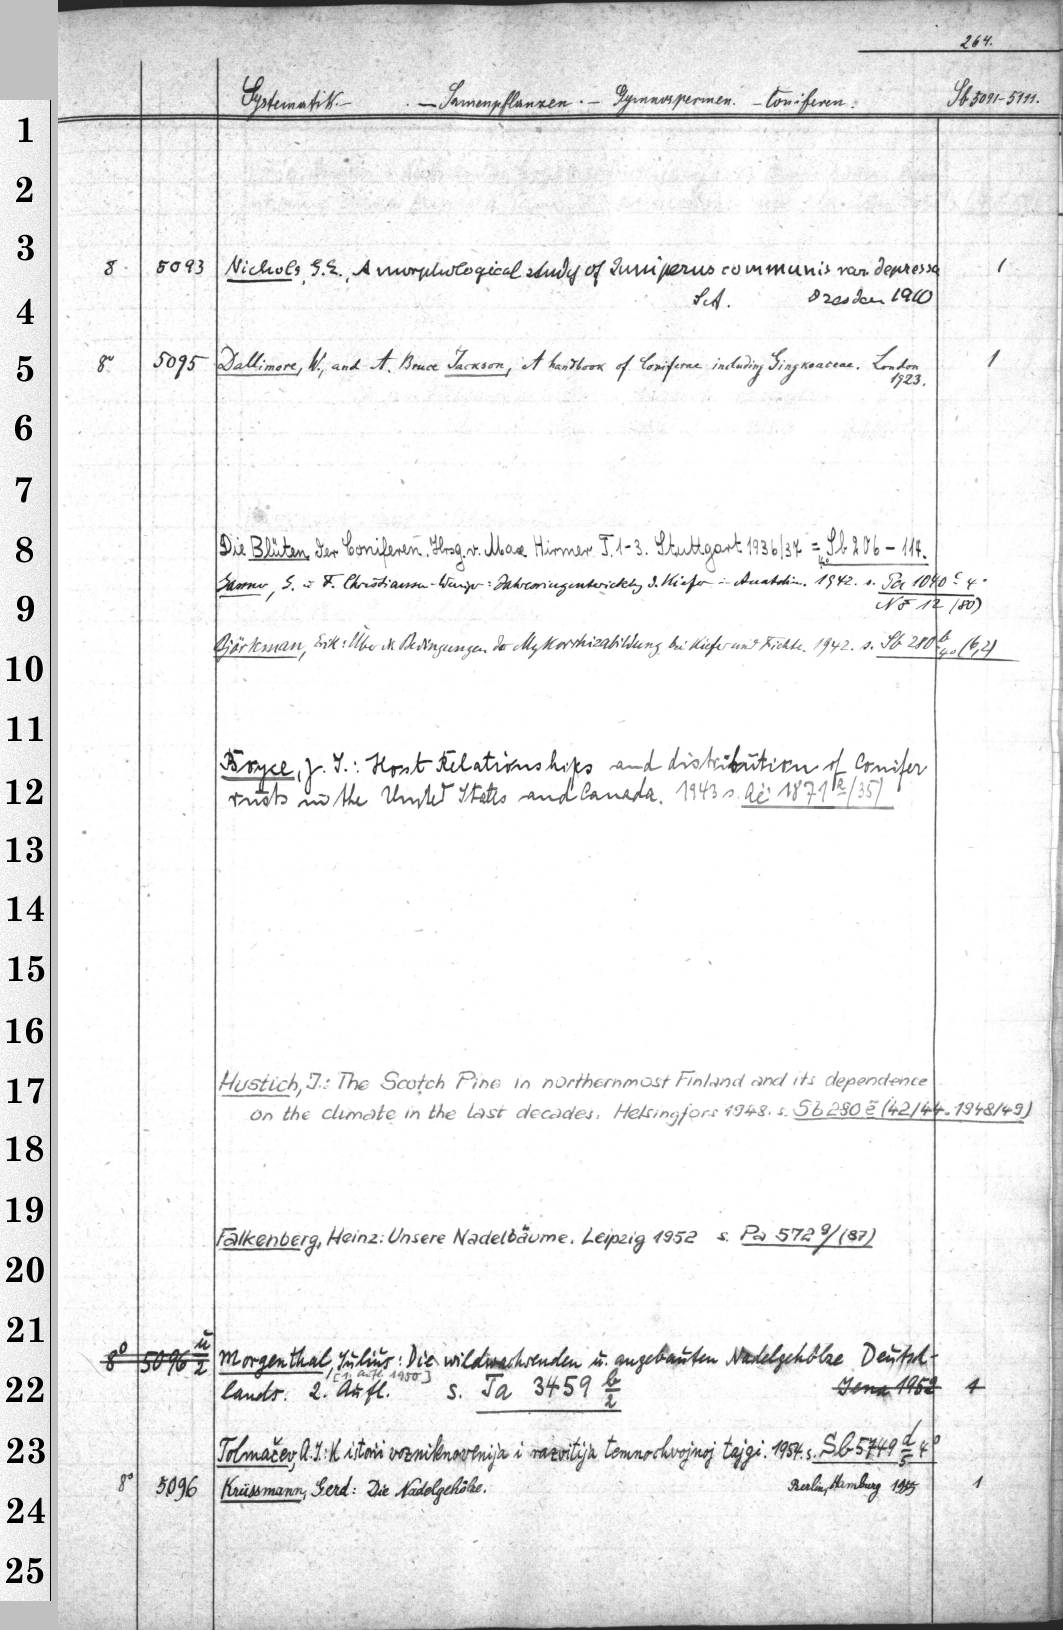 264.
Systematik. — Samenpflanzen. — Gymnospermen. — Coniferen. Sb 5091-5111.
1
2
3
8° 5093 Nichols, G.E., A morphological study of Juniperus communis var. depressa 1
S.A. Dresden 1910
4
8° 5095 Dallimore, W., and A. Bruce Jackson, A handbook of Coniferae including Gingkoaceae. London 1
1923.
5
6
7
8
Die Blüten der Coniferen. Hrsg. v. Max Hirmer T. 1-3. Stuttgart 1936/37 = Sb 206 - 114.
S. u. F. Christiansen-Weniger: Jahresringentwicklg d. Kiefer in Anatolien. 1942. s. Pa 1040 c 4°
N.F. 12 (80)
9
Björkman, Erik: Über die Bedingungen der Mykorrhizabildung bei Kiefer und Fichte. 1942. s. Sb 280 b 4° (6,2)
10
11
Boyce, J. S.: Host Relationships and distribution of Conifer
rusts in the United States and Canada. 1943 s. 1871 a/35)
12
13
14
15
16
17
Hustich, I.: The Scotch Pine in northernmost Finland and its dependence
on the climate in the last decades. Helsingfors 1948. s. Sb 280 e (42/44. 1948/49)
18
19
Falkenberg, Heinz: Unsere Nadelbäume. Leipzig 1952 s. Pa 572 g/(87)
20
21
8° 5096 u/2 Morgenthal, Julius: Die wildwachsenden u. angebauten Nadelgehölze Deutsch-
[1. Aufl. 1950]
lands. 2. Aufl. s. Ta 3459 b/2 Jena 1952 1
22
23
Tolmačev, A.I.: K istorii vozniknovenija i razvitija temnochvojnoj tajgi. 1954. s. Sb 5749 d/5 4°
8° 5096 Krüssmann, Gerd: Die Nadelgehölze. Berlin, Hamburg 1955 1
24
25